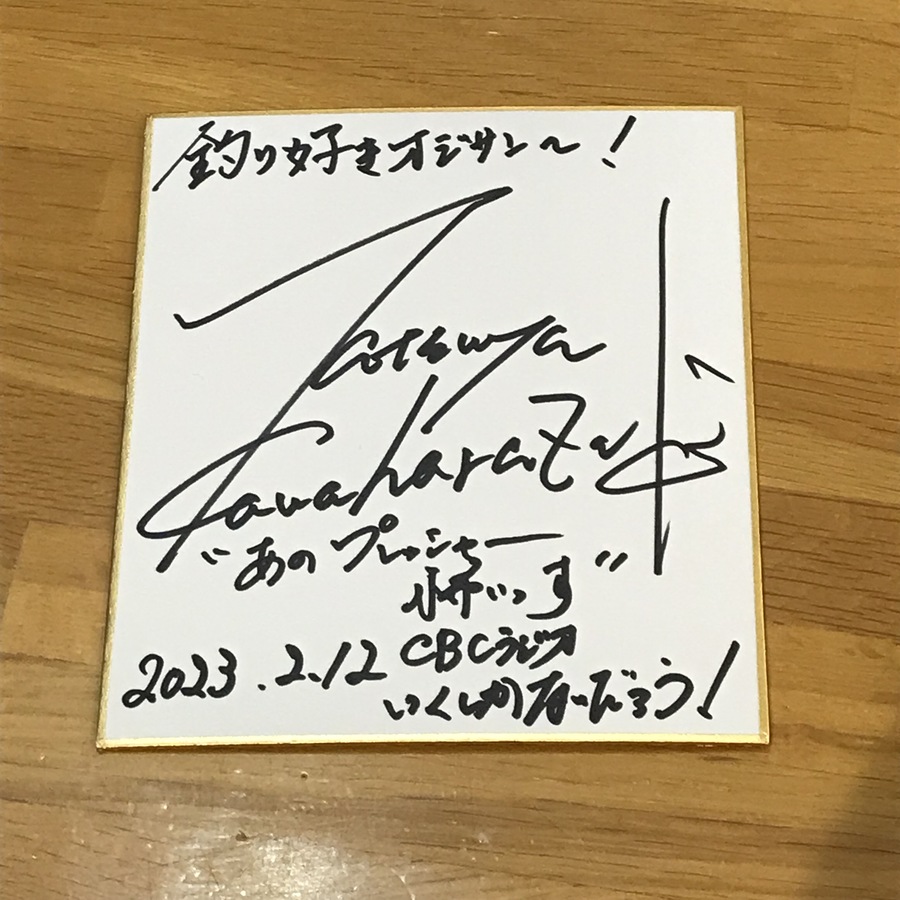 釣り好きオジサン〜!
Tatsuya
Kawaharazuka
"あの プレッシャー
怖いっす"
2023.2.12 CBCラジオ
いくしかないだろう!